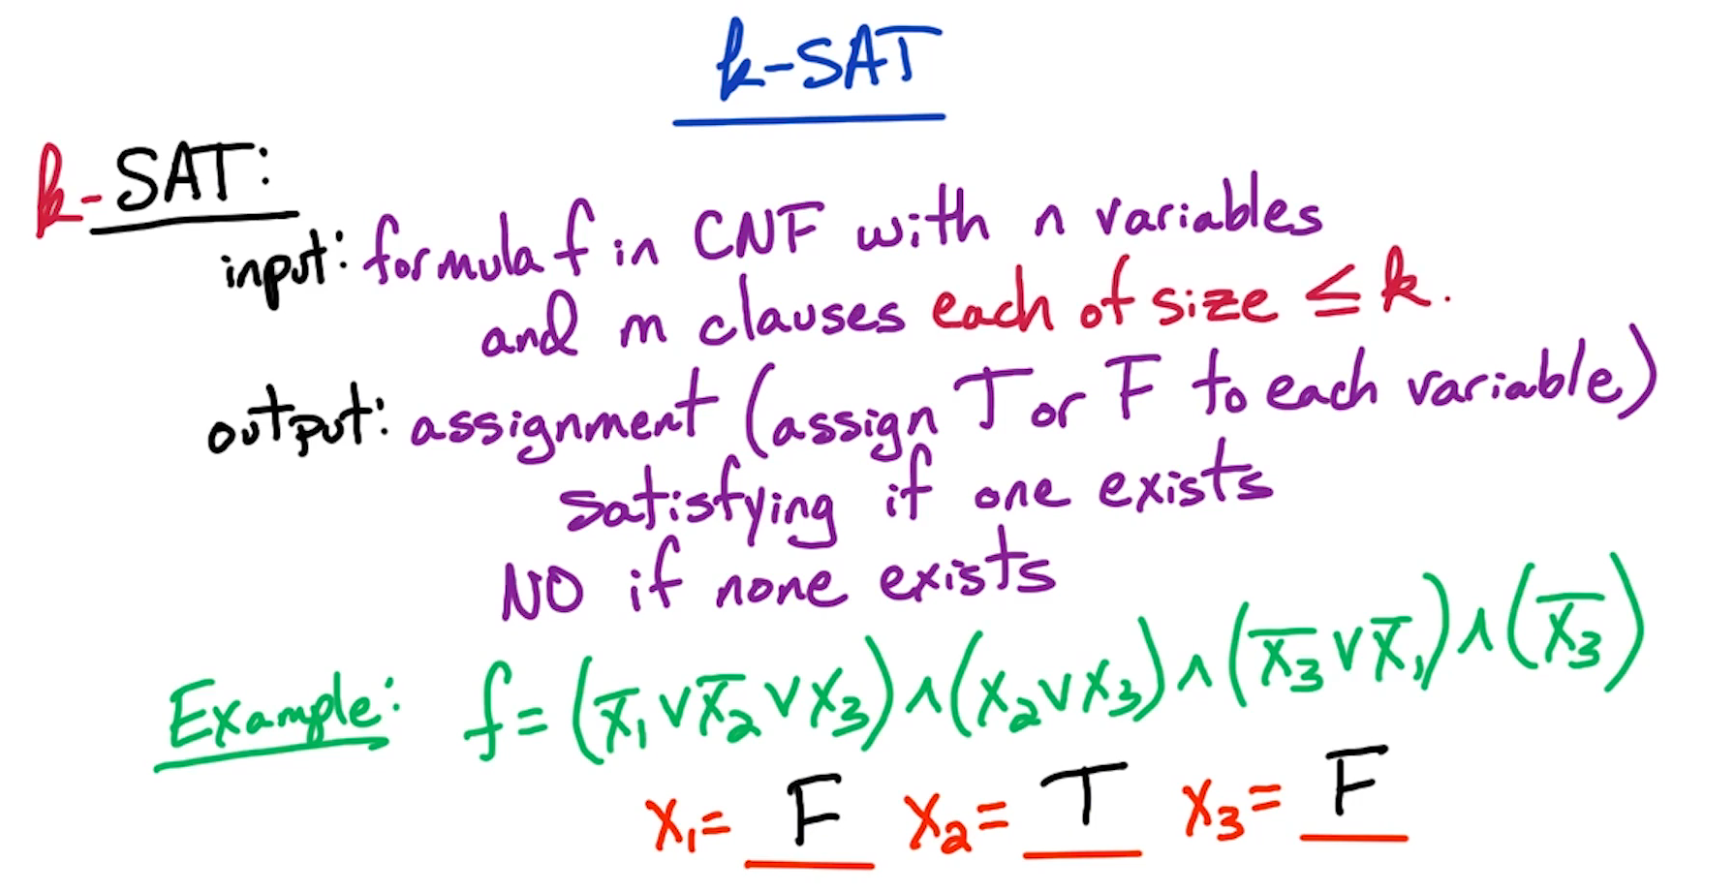 k-SAT
k-SAT:
input: formula f in CNF with n variables
and m clauses each of size ≤ k.
output: assignment (assign T or F to each variable)
satisfying if one exists
NO if none exists
Example: f = (x̅₁ ∨ x̅₂ ∨ x₃) ∧ (x₂ ∨ x₃) ∧ (x̅₃ ∨ x̅₁) ∧ (x̅₃)
x₁ = F x₂ = T x₃ = F